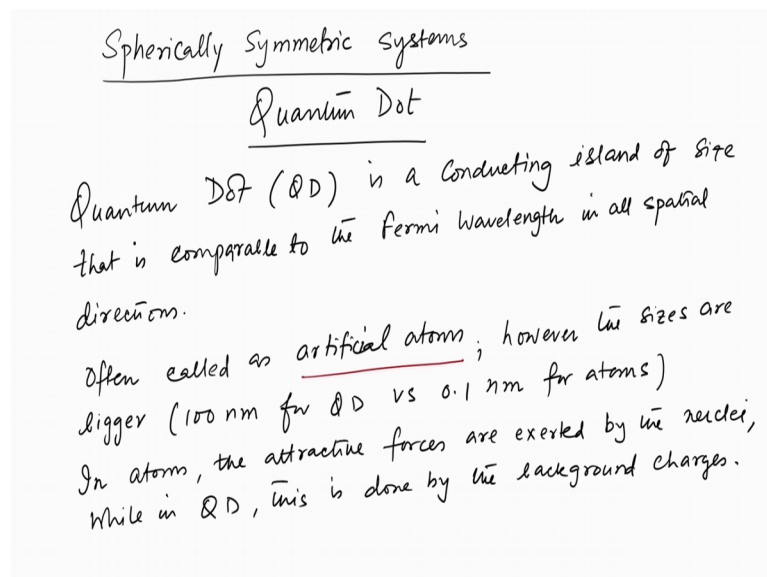 Spherically Symmetric systems
Quantum Dot
Quantum Dot (QD) is a conducting island of size
that is comparable to the Fermi wavelength in all spatial
directions.
Often called as artificial atoms; however the sizes are
bigger (100 nm for QD vs 0.1 nm for atoms)
In atoms, the attractive forces are exerted by the nuclei,
while in QD, this is done by the background charges.